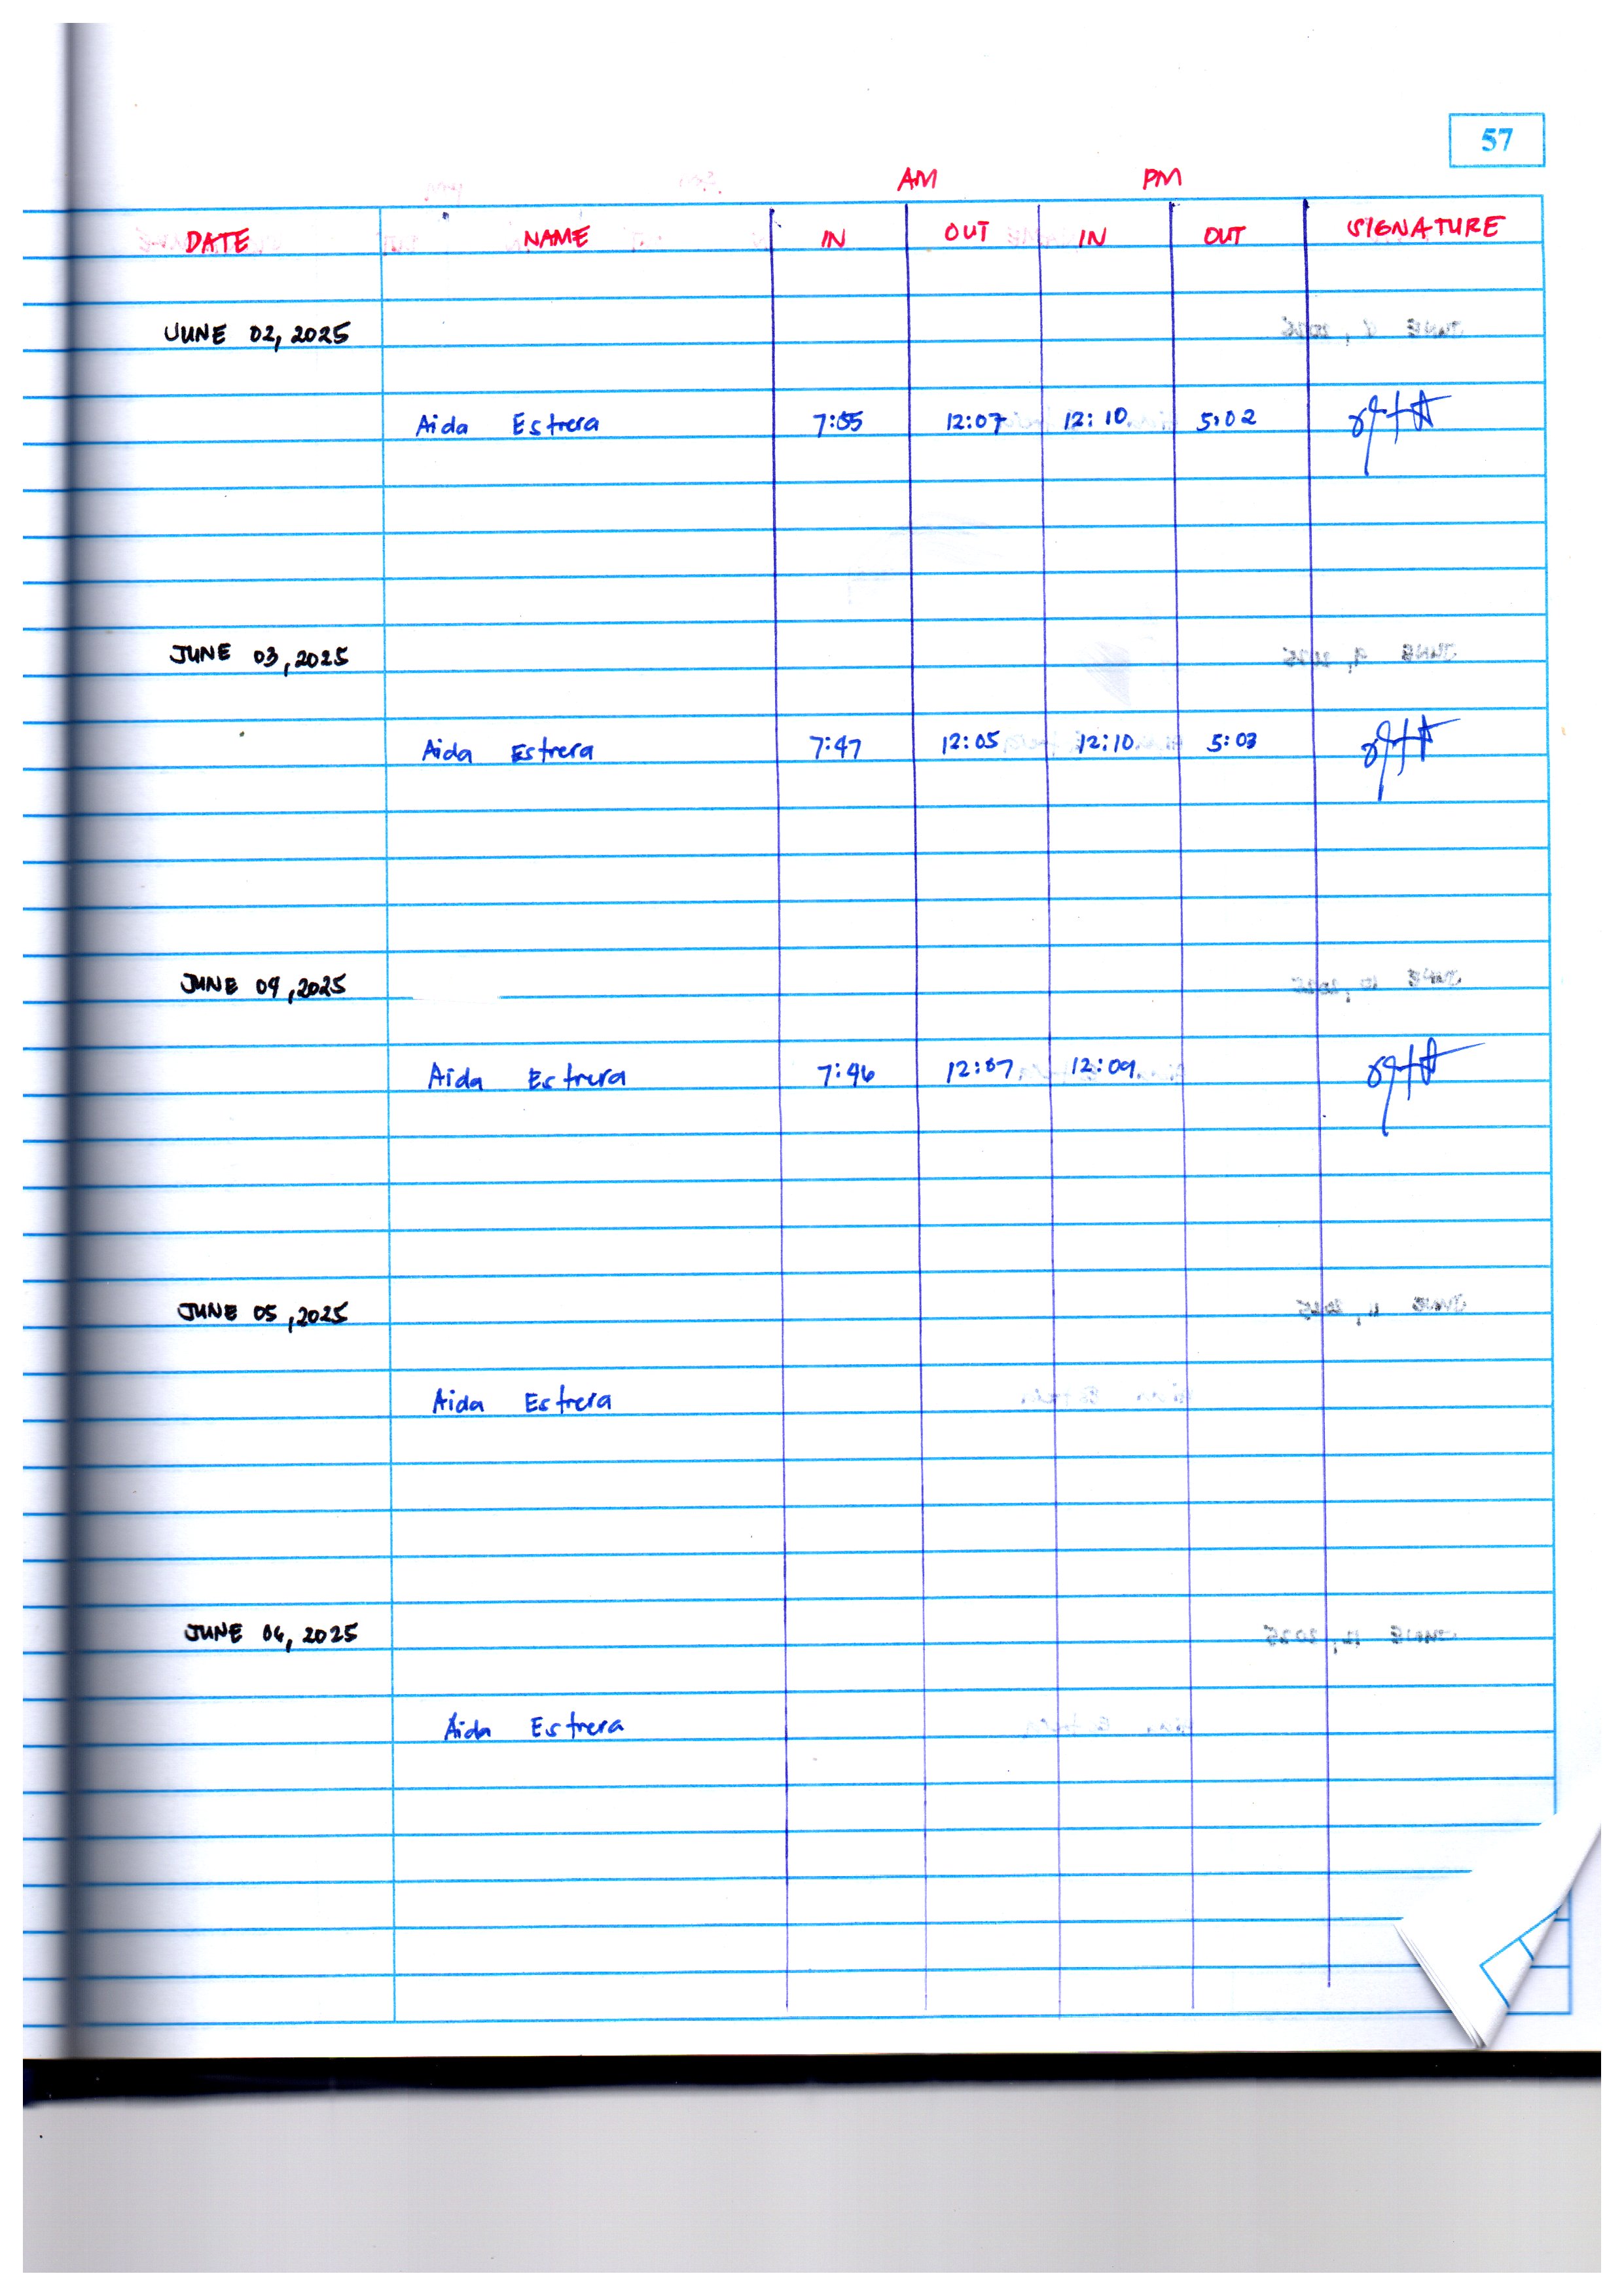 57
AM PM
DATE NAME IN OUT IN OUT SIGNATURE
JUNE 02, 2025
Aida Estrera 7:55 12:07 12:10 5:02
JUNE 03, 2025
Aida Estrera 7:47 12:05 12:10 5:03
JUNE 04, 2025
Aida Estrera 7:46 12:07 12:09
JUNE 05, 2025
Aida Estrera
JUNE 06, 2025
Aida Estrera